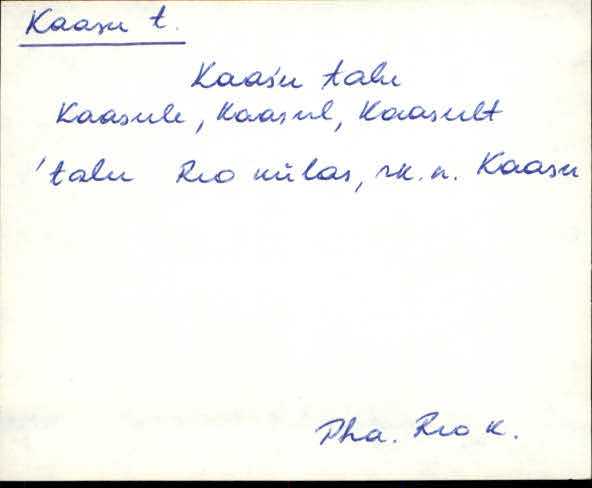 Kaasu t.
Kaas'u talu
Kaasule, Kaasul, Kaasult
'talu Reo külas, rk. n. Kaasu
Pha. Reo k.